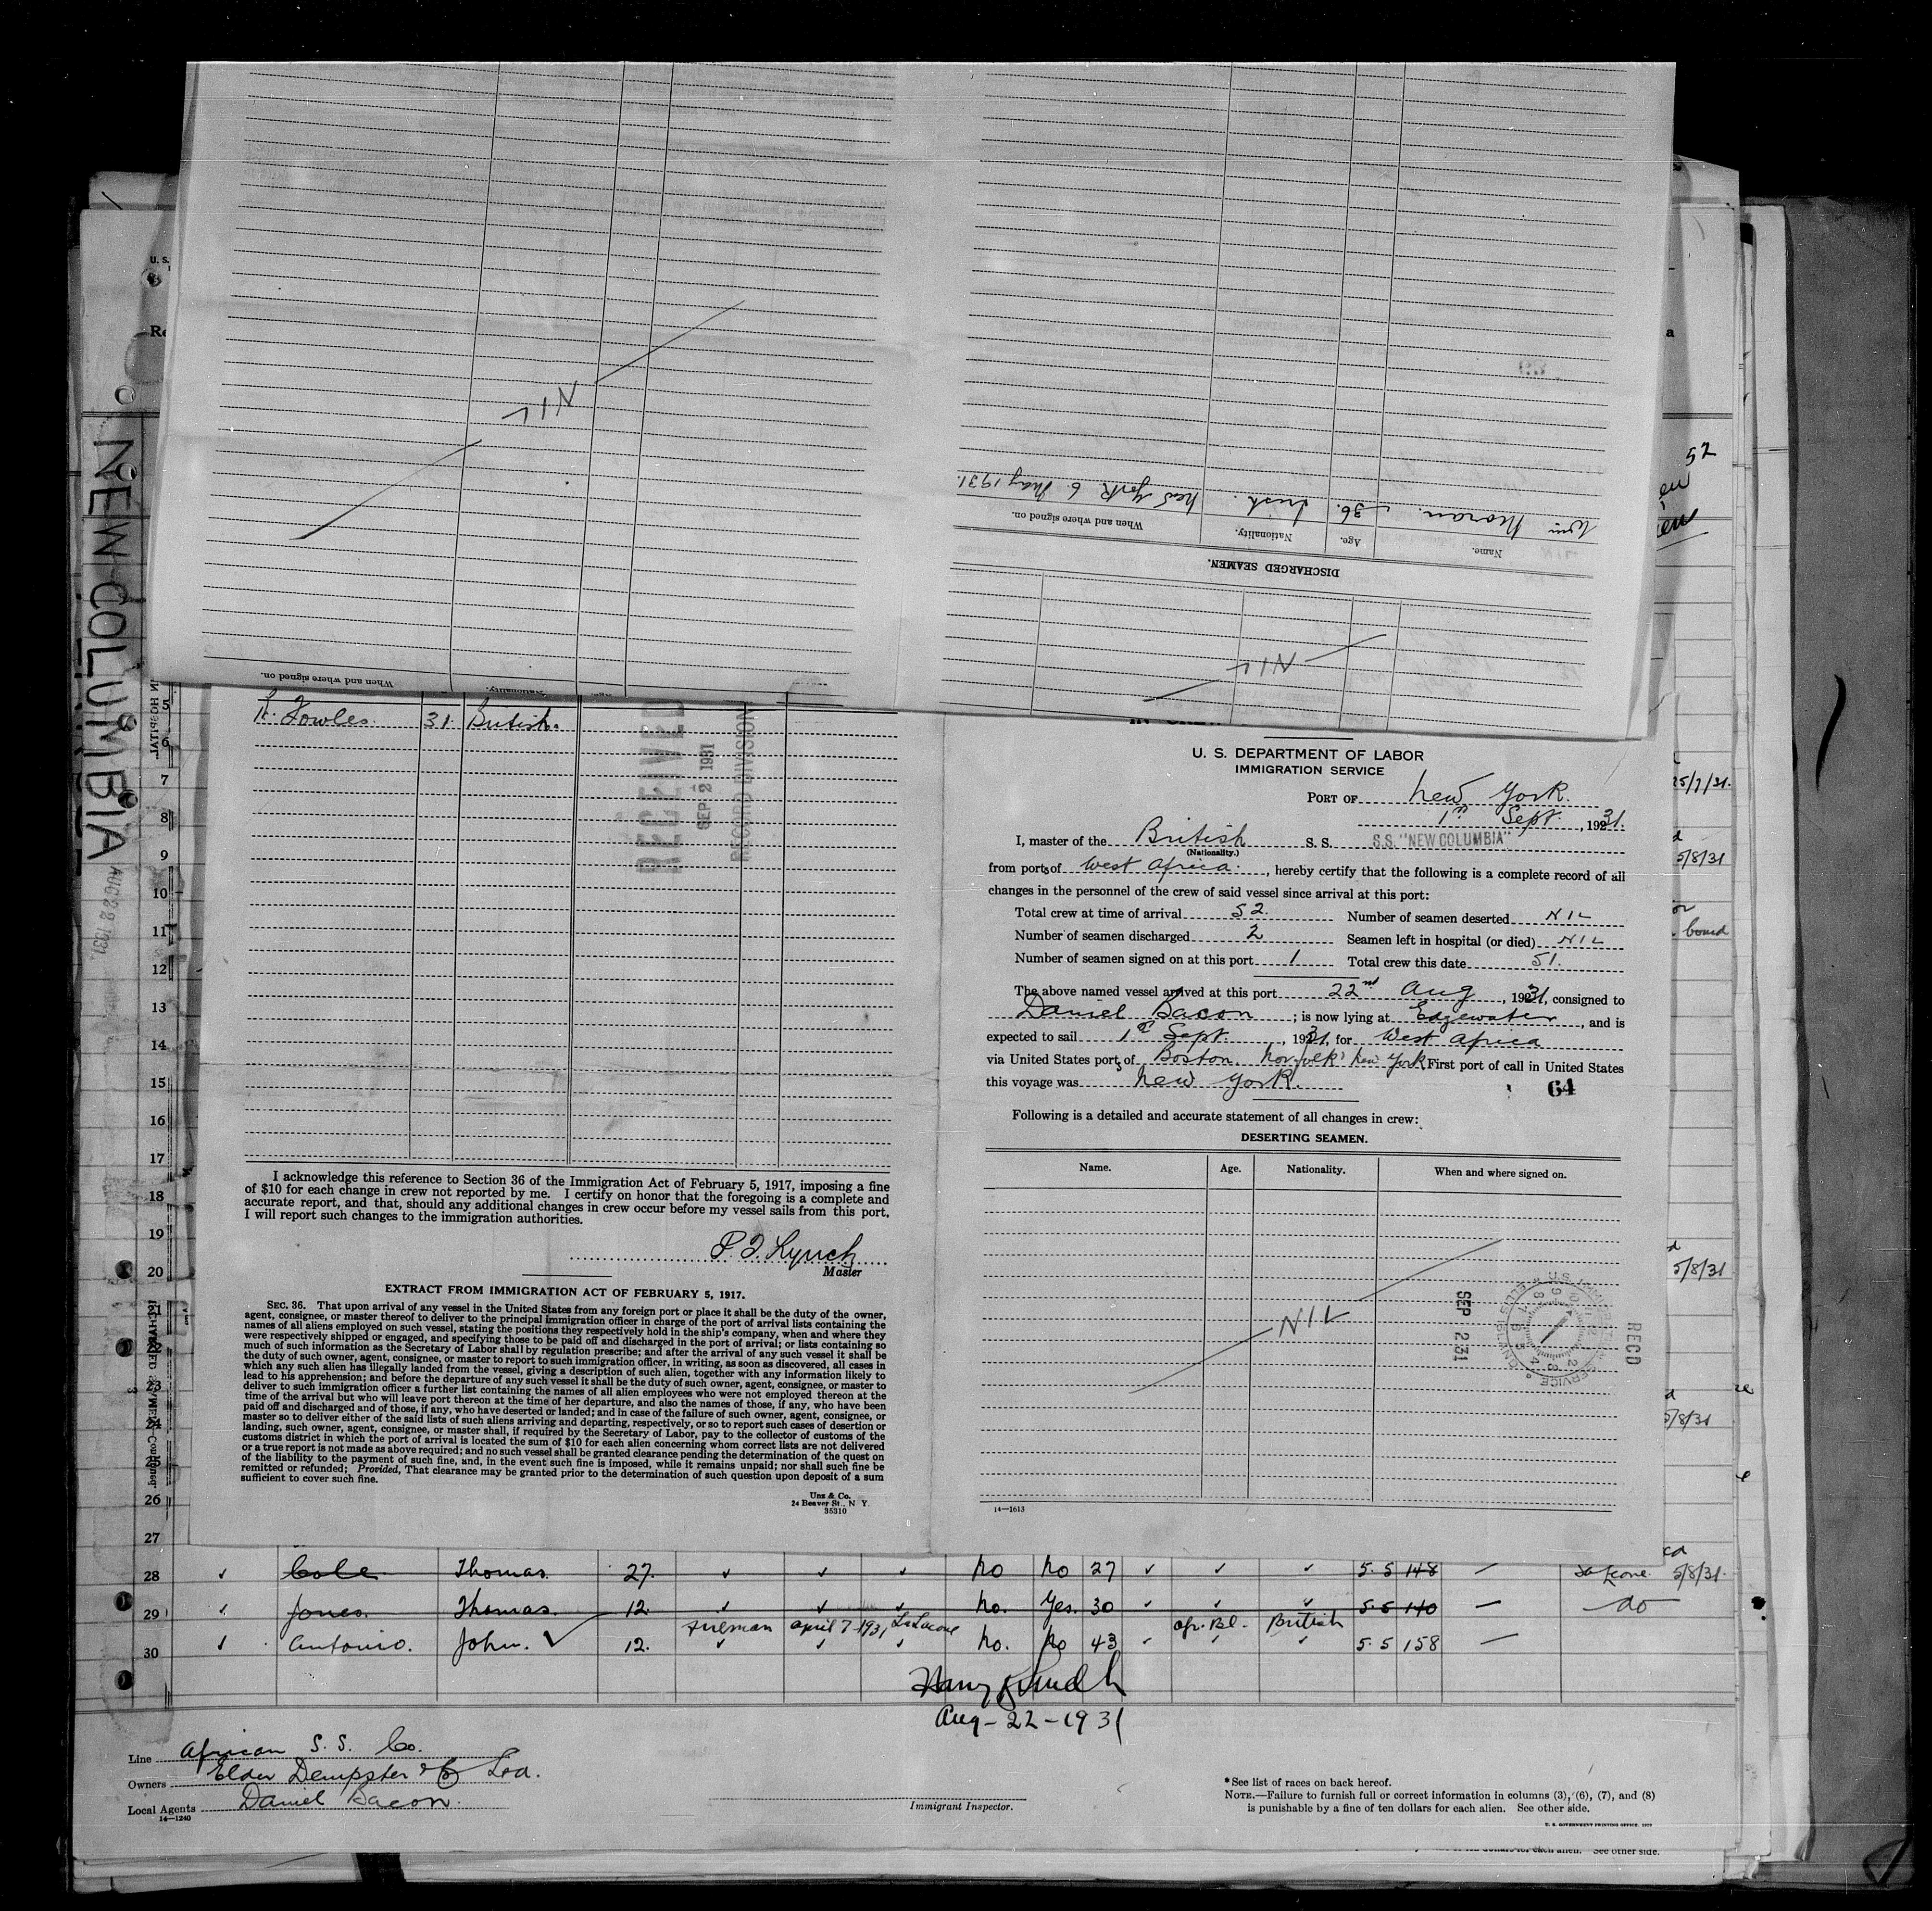 NIL
Wm Moran. 36. Irish. New York 6. May 1931.
Name. Age. Nationality. When and where signed on.
DISCHARGED SEAMEN.
NIL
When and where signed on.
NEW COLUMBIA
AUG 22 1931
52
R. Fowles. 31. British.
RECEIVED
SEP 2 1931
RECORD DIVISION
U. S. DEPARTMENT OF LABOR
IMMIGRATION SERVICE
PORT OF New York.
1st Sept., 1931.
I, master of the British S. S. S.S. "NEW COLUMBIA"
(Nationality.)
from ports of West Africa., hereby certify that the following is a complete record of all
changes in the personnel of the crew of said vessel since arrival at this port:
Total crew at time of arrival 52. Number of seamen deserted NIL
Number of seamen discharged 2 Seamen left in hospital (or died) NIL
Number of seamen signed on at this port 1 Total crew this date 51.
The above named vessel arrived at this port 22nd Aug, 1931, consigned to
Daniel Bacon; is now lying at Edgewater, and is
expected to sail 1st Sept., 1931, for West Africa
via United States ports of Boston. Norfolk New York First port of call in United States
this voyage was New York.
64
Following is a detailed and accurate statement of all changes in crew:
DESERTING SEAMEN.
Name. Age. Nationality. When and where signed on.
NIL
SEP 2 31
RECD
14—1613
5
6
7
8
9
10
11
12
13
14
15
16
17
18
19
20
21
22
23
24
25
26
27
I acknowledge this reference to Section 36 of the Immigration Act of February 5, 1917, imposing a fine
of $10 for each change in crew not reported by me. I certify on honor that the foregoing is a complete and
accurate report, and that, should any additional changes in crew occur before my vessel sails from this port,
I will report such changes to the immigration authorities.
P. J. Lynch
Master
EXTRACT FROM IMMIGRATION ACT OF FEBRUARY 5, 1917.
SEC. 36. That upon arrival of any vessel in the United States from any foreign port or place it shall be the duty of the owner,
agent, consignee, or master thereof to deliver to the principal immigration officer in charge of the port of arrival lists containing the
names of all aliens employed on such vessel, stating the positions they respectively hold in the ship's company, when and where they
were respectively shipped or engaged, and specifying those to be paid off and discharged in the port of arrival; or lists containing so
much of such information as the Secretary of Labor shall by regulation prescribe; and after the arrival of any such vessel it shall be
the duty of such owner, agent, consignee, or master to report to such immigration officer, in writing, as soon as discovered, all cases in
which any such alien has illegally landed from the vessel, giving a description of such alien, together with any information likely to
lead to his apprehension; and before the departure of any such vessel it shall be the duty of such owner, agent, consignee, or master to
deliver to such immigration officer a further list containing the names of all alien employees who were not employed thereon at the
time of the arrival but who will leave port thereon at the time of her departure, and also the names of those, if any, who have been
paid off and discharged and of those, if any, who have deserted or landed; and in case of the failure of such owner, agent, consignee, or
master so to deliver either of the said lists of such aliens arriving and departing, respectively, or so to report such cases of desertion or
landing, such owner, agent, consignee, or master shall, if required by the Secretary of Labor, pay to the collector of customs of the
customs district in which the port of arrival is located the sum of $10 for each alien concerning whom correct lists are not delivered
or a true report is not made as above required; and no such vessel shall be granted clearance pending the determination of the quest on
of the liability to the payment of such fine, and, in the event such fine is imposed, while it remains unpaid; nor shall such fine be
remitted or refunded; Provided, That clearance may be granted prior to the determination of such question upon deposit of a sum
sufficient to cover such fine.
Unz & Co.
24 Beaver St., N Y.
35310
28 Cole Thomas. 27. No No 27 5.5 148 5/8/31
29 Jones. Thomas. 12. No. Yes. 30 5.5 140 do
Fireman April 7-1931 Afr. Bl. British
30 Antonio. John. 12. No. No 43 5.5 158
Aug-22-1931
Line African S. S. Co.
Owners Elder Dempster & Co Ltd.
Local Agents Daniel Bacon.
14—1240
Immigrant Inspector.
*See list of races on back hereof.
NOTE.—Failure to furnish full or correct information in columns (3), (6), (7), and (8)
is punishable by a fine of ten dollars for each alien. See other side.
U. S. GOVERNMENT PRINTING OFFICE
See other side.